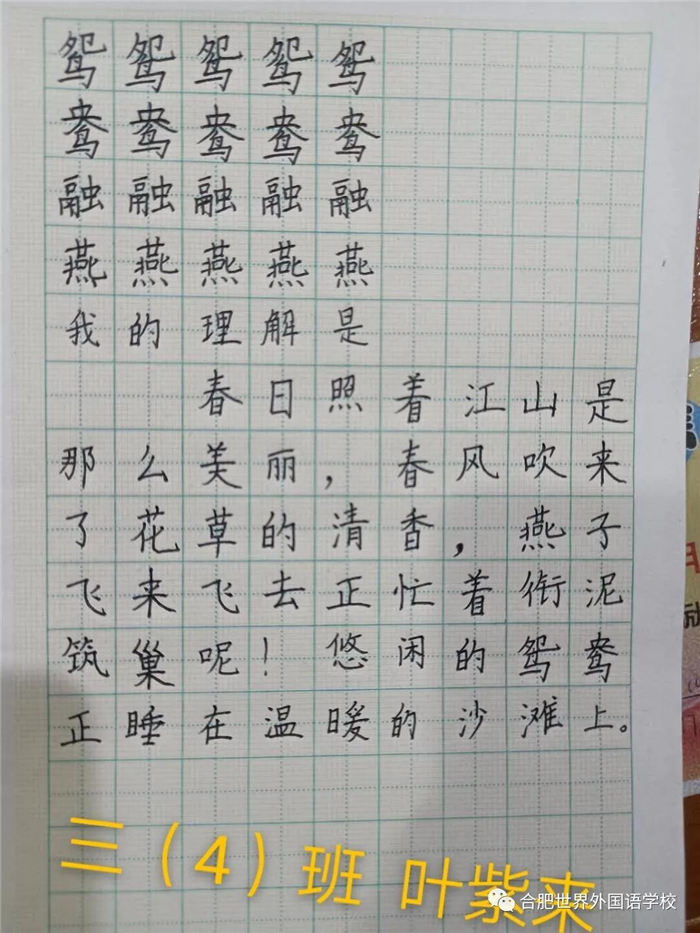 鸳鸳鸳鸳鸳
鸯鸯鸯鸯鸯
融融融融融
燕燕燕燕燕
我的理解是
春日照着江山是
那么美丽，春风吹来
了花草的清香，燕子
飞来飞去正忙着衔泥
筑巢呢！悠闲的鸳鸯
正睡在温暖的沙滩上。
三（4）班 叶紫来
合肥世界外国语学校